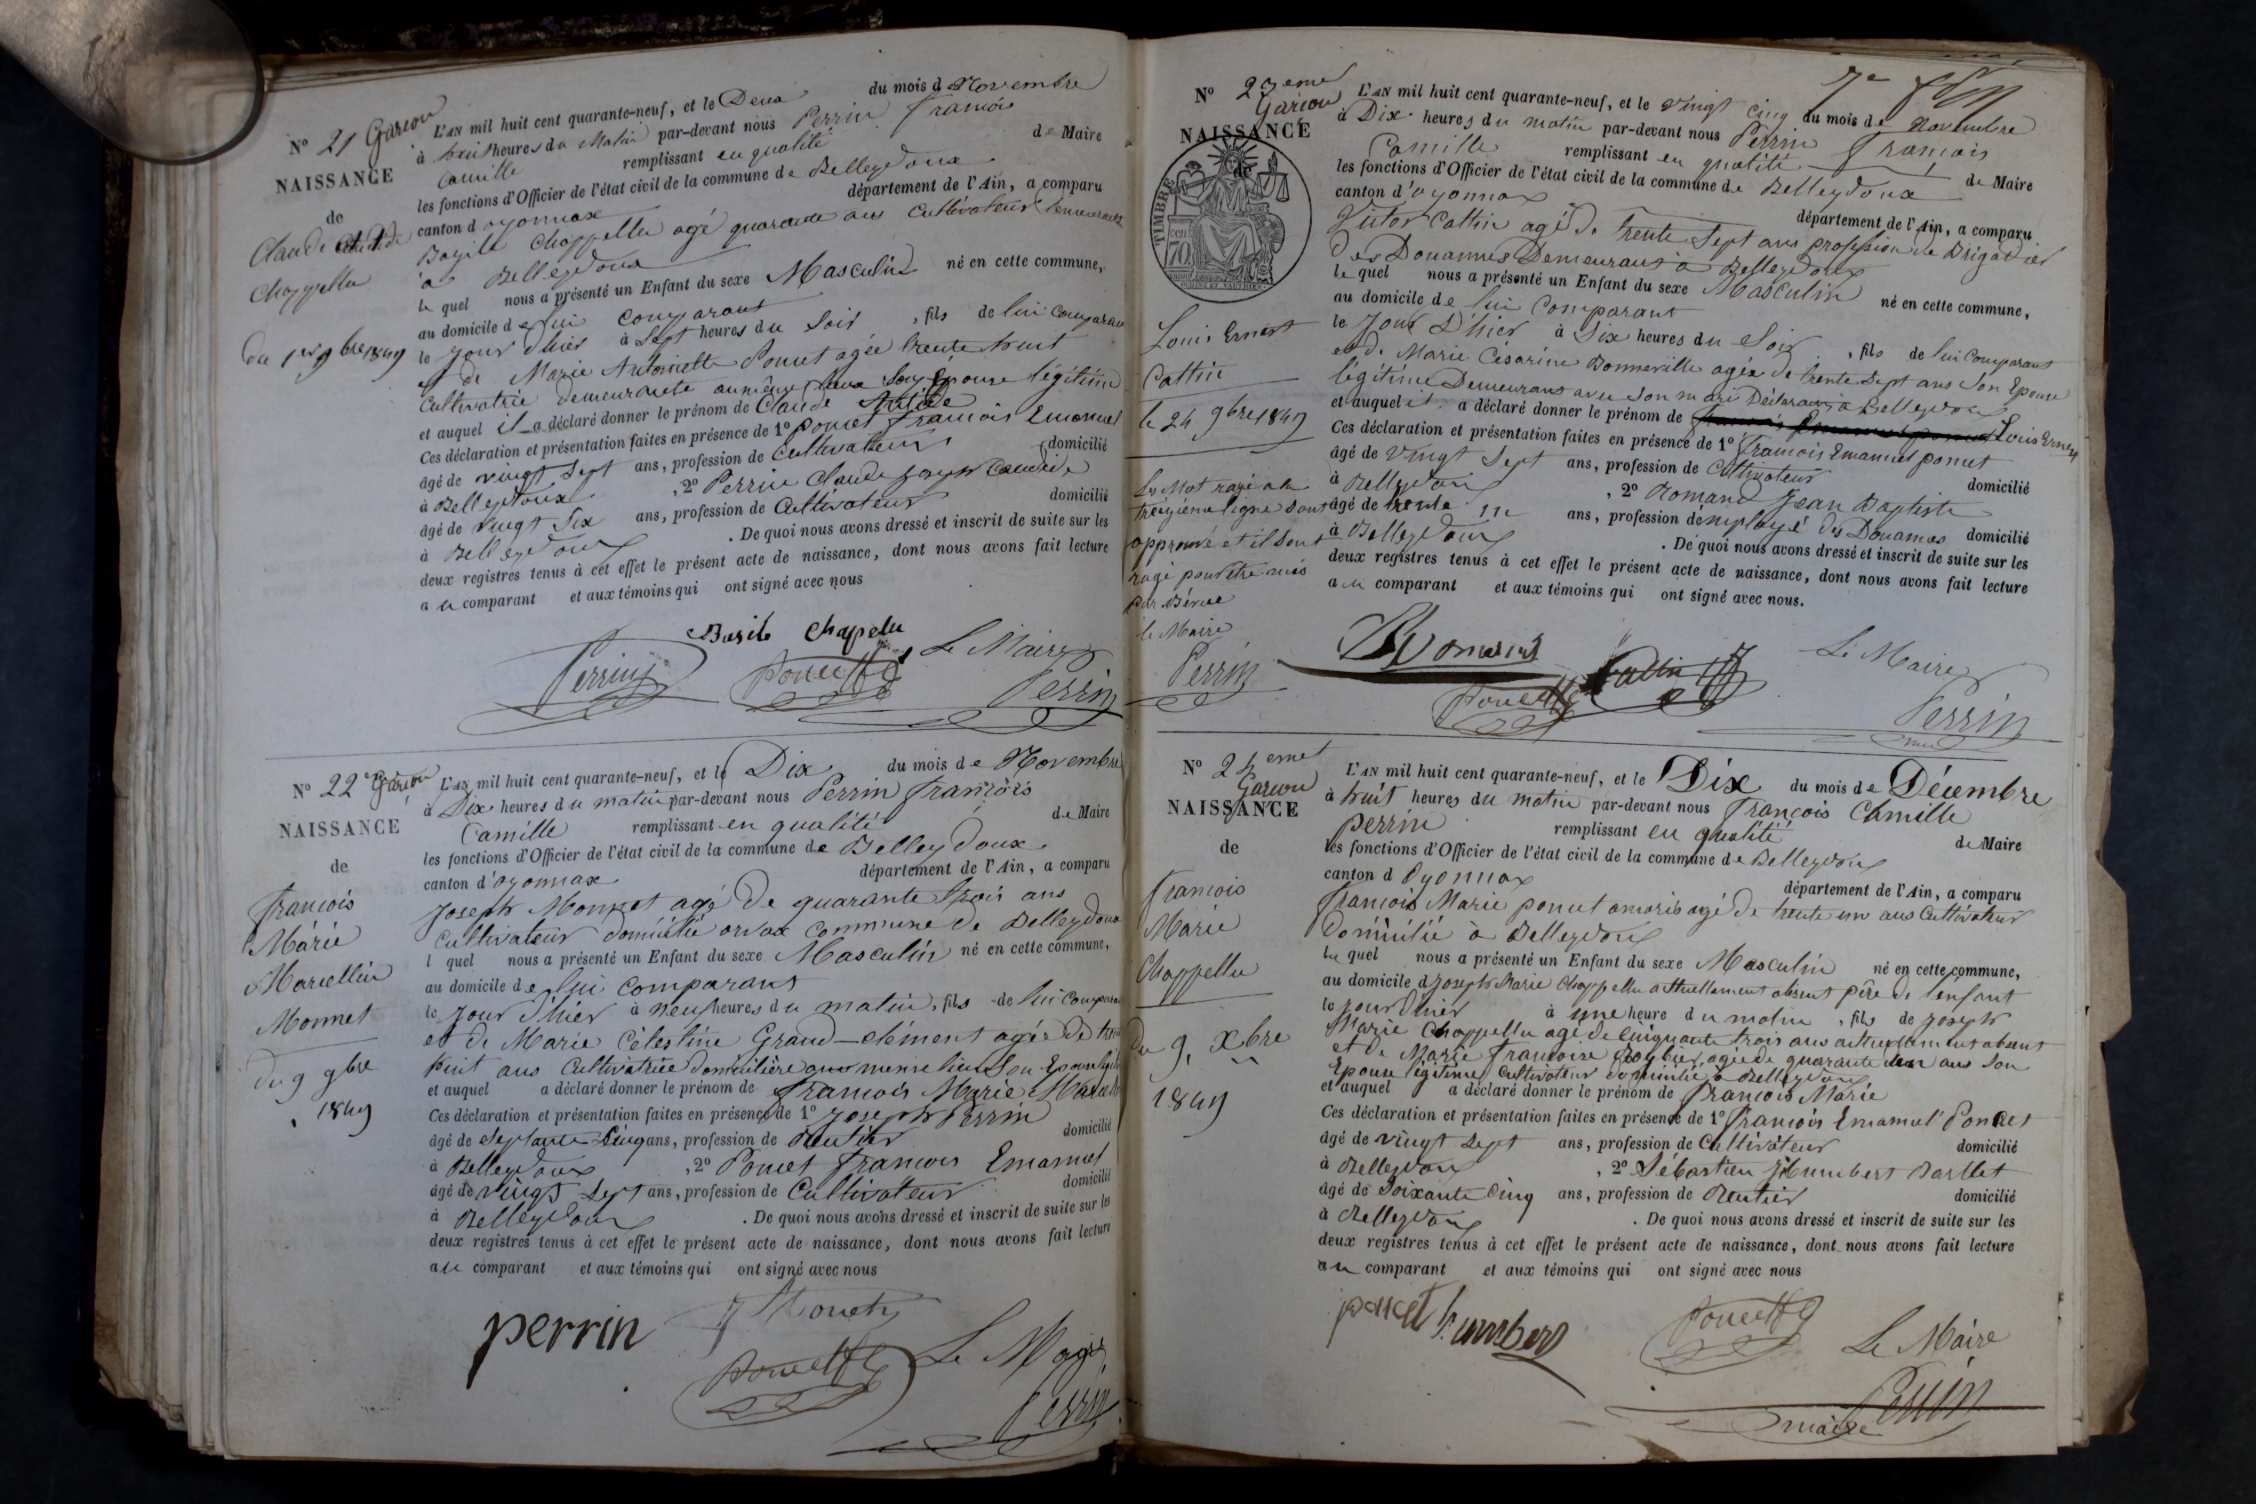 N° 21 Garcon
NAISSANCE
de
Claude
Chappellu
du 1er 9bre 1849
L'AN mil huit cent quarante-neuf, et le Deux du mois de Novembre
à huit heures du Matin par-devant nous Perrin François
Camille remplissant en qualité de Maire
les fonctions d'Officier de l'état civil de la commune de Belleydoux
canton d'oyonnax département de l'Ain, a comparu
Bazile Chappellu agé quarante ans Cultivateur Demeurant
à Belleydoux
le quel nous a présenté un Enfant du sexe Masculin né en cette commune,
au domicile de lui comparant
le jour d'hier à Sept heures du Soir, fils de lui Comparant
et de Marie Antoinette Poncet agée trente huit
Cultivatrice demeurante au même lieu Son Epouse légitime
et auquel il a déclaré donner le prénom de Claude
Ces déclaration et présentation faites en présence de 1° poncet francois Emanuel
âgé de vingt Sept ans, profession de Cultivateur domicilié
à Belleydoux, 2° Perrin Claude Joseph
âgé de vingt Six ans, profession de Cultivateur domicilié
à Belleydoux. De quoi nous avons dressé et inscrit de suite sur les
deux registres tenus à cet effet le présent acte de naissance, dont nous avons fait lecture
au comparant et aux témoins qui ont signé avec nous
Basile Chapelu Le Maire
Perrin Poncet Perrin
N° 22 Garcon
NAISSANCE
de
francois
Marie
Marcellin
Monnet
du 9 9bre
1849
L'AN mil huit cent quarante-neuf, et le Dix du mois de Novembre
à Dix heures du matin par-devant nous Perrin François
Camille remplissant en qualité de Maire
les fonctions d'Officier de l'état civil de la commune de Belleydoux
canton d'oyonnax département de l'Ain, a comparu
Joseph Monnet agé De quarante trois ans
Cultivateur domicilié orvaz commune de Belleydoux
l quel nous a présenté un Enfant du sexe Masculin né en cette commune,
au domicile de lui comparant
le Jour d'hier à neuf heures du matin, fils de lui Compara
et de Marie Célestine Grand-clément agée de
huit ans Cultivatrice domicilière au même lieu Son Epouse
et auquel a déclaré donner le prénom de francois Marie
Ces déclaration et présentation faites en présence de 1° Joseph Perrin
âgé de Septante Cinq ans, profession de Rentier domicilié
à Belleydoux, 2° Poncet francois Emanuel
âgé de vingt Sept ans, profession de Cultivateur domicilié
à Belleydoux. De quoi nous avons dressé et inscrit de suite sur les
deux registres tenus à cet effet le présent acte de naissance, dont nous avons fait lecture
au comparant et aux témoins qui ont signé avec nous
perrin
Poncet Le Maire
Perrin
7e
N° 23eme
Garcon
NAISSANCE
de
TIMBRE
70
Louis Ernest
Cattin
le 24 9bre 1849
Les Mot rayé a la
treizième ligne sont
approuvé et il sont
rayé pour être mis
par Bévue
le Maire
Perrin
L'AN mil huit cent quarante-neuf, et le vingt Cinq du mois de Novembre
à Dix heures du matin par-devant nous Perrin François
Camille remplissant en qualité de Maire
les fonctions d'Officier de l'état civil de la commune de Belleydoux
canton d'oyonnax département de l'Ain, a comparu
Victor Cattin agé de trente Sept ans profession de Brigadier
des Douannes Demeurant à Belleydoux
le quel nous a présenté un Enfant du sexe Masculin né en cette commune,
au domicile de lui Comparant
le Jour D'hier à Six heures du Soir, fils de lui Comparant
et de Marie Césarine Bonneville agée de trente Sept ans Son Epouse
légitime Demeurant avec Son mari à Belleydoux
et auquel il a déclaré donner le prénom de Louis Ernest
Ces déclaration et présentation faites en présence de 1° francois Emanuel poncet
âgé de vingt Sept ans, profession de Cultivateur domicilié
à Belleydoux, 2° Romand Jean Baptiste
âgé de trente un ans, profession d'employé des Douannes domicilié
à Belleydoux. De quoi nous avons dressé et inscrit de suite sur les
deux registres tenus à cet effet le présent acte de naissance, dont nous avons fait lecture
au comparant et aux témoins qui ont signé avec nous.
Romand Cattin Le Maire
Poncet Perrin
N° 24eme
Garcon
NAISSANCE
de
francois
Marie
Chappellu
du 9. Xbre
1849
L'AN mil huit cent quarante-neuf, et le Dix du mois de Décembre
à huit heures du matin par-devant nous François Camille
perrin remplissant en qualité de Maire
les fonctions d'Officier de l'état civil de la commune de Belleydoux
canton d'Oyonnax département de l'Ain, a comparu
francois Marie poncet agé de trente un ans Cultivateur
Domicilié à Belleydoux
le quel nous a présenté un Enfant du sexe Masculin né en cette commune,
au domicile d Joseph Marie Chappellu actuellement absent père de l'enfant
le jour d'hier à une heure du matin, fils de Joseph
Marie Chappellu agé de Cinquante trois ans actuellement absent
et de Marie francoise agée de quarante ans Son
Epouse légitime Cultivateur domicilié à Belleydoux
et auquel a déclaré donner le prénom de francois Marie
Ces déclaration et présentation faites en présence de 1° francois Emanuel Poncet
âgé de vingt Sept ans, profession de Cultivateur domicilié
à Belleydoux, 2° Sébastien humbert Barllet
âgé de Soixante Cinq ans, profession de Rentier domicilié
à Belleydoux. De quoi nous avons dressé et inscrit de suite sur les
deux registres tenus à cet effet le présent acte de naissance, dont nous avons fait lecture
au comparant et aux témoins qui ont signé avec nous
poncet humbert Poncet Le Maire
Perrin
maire